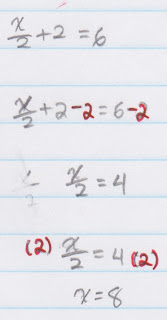 x/2 + 2 = 6
x/2 + 2 - 2 = 6 - 2
x/2 = 4
(2) x/2 = 4 (2)
x = 8